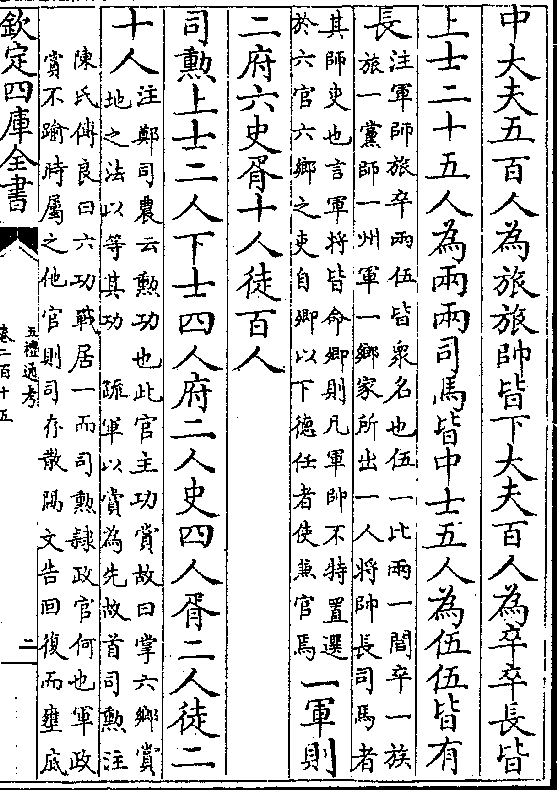 中大夫五百人為旅旅帥皆下大夫百人為卒卒長皆
上士二十五人為兩兩司馬皆中士五人為伍伍皆有
長注軍師旅卒兩伍皆衆名也伍一比兩一閭卒一族
旅一黨師一州軍一鄉家所出一人將帥長司馬者
其師吏也言軍將皆命卿則凡軍帥不特置選
於六官六鄉之吏自卿以下德任者使兼官焉一軍則
二府六史胥十人徒百人
司勲上士二人下士四人府二人史四人胥二人徒二
十人注鄭司農云勲功也此官主功賞故曰掌六鄉賞
地之法以等其功 疏軍以賞為先故首司勲注
陳氏傅良曰六功戰居一而司勲隸政官何也軍政
賞不踰時屬之他官則司存散隔文告回復而壅底
欽定四庫全書
五禮通考
卷二百十五
二